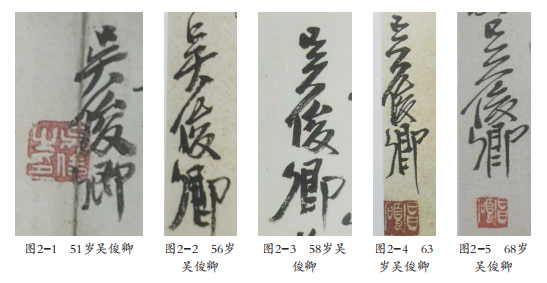 吴俊卿
吴俊卿
吴俊卿
吴俊卿
吴俊卿
图2-1 51岁吴俊卿
图2-2 56岁
吴俊卿
图2-3 58岁吴
俊卿
图2-4 63
岁吴俊卿
图2-5 68岁
吴俊卿